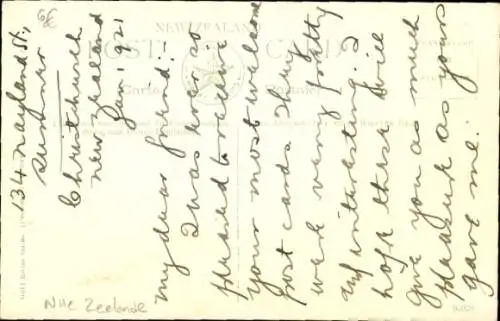 134 Nayland St,
Sumner
Christchurch
New Zealand
Jan. 1921
My dear friend:
I was ever so
pleased to receive
your most welcome
post cards. They
were very pretty
and interesting. I
hope these will
give you as much
pleasure as yours
gave me.
NEW ZEALAND
POST CARD
Carte Postale
Nlle Zeelande